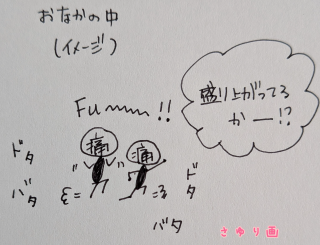 おなかの中
(イメージ)
Fuーーー!!
盛り上がってる
かー!?
痛
痛
ドタ
バタ
ドタ
バタ
さゆり画